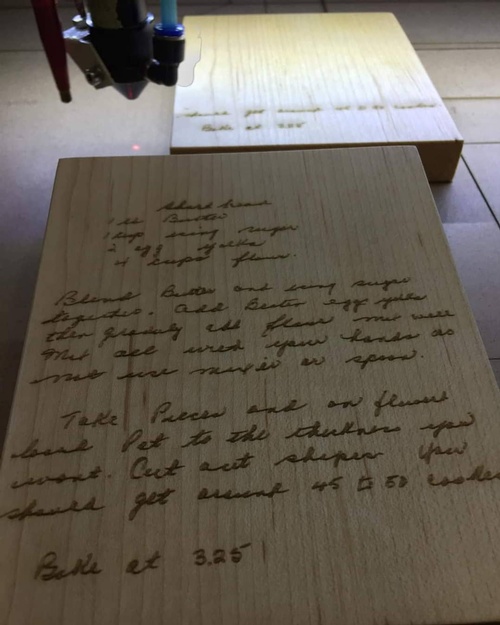 should get around 45 to 50 cookies
Bake at 325
short bread
1 lb Butter
1 cup icing sugar
2 egg yolks
4 cups flour.
Blend Butter and icing sugar
together. Add Beaten egg yolks
then gradualy add flour mix well
Mix all with your hands do
not use mixer or spoon.
Take Pieces and on
board Pat to the thickness you
want. Cut out shapes You
should get around 45 to 50 cookies
Bake at 325